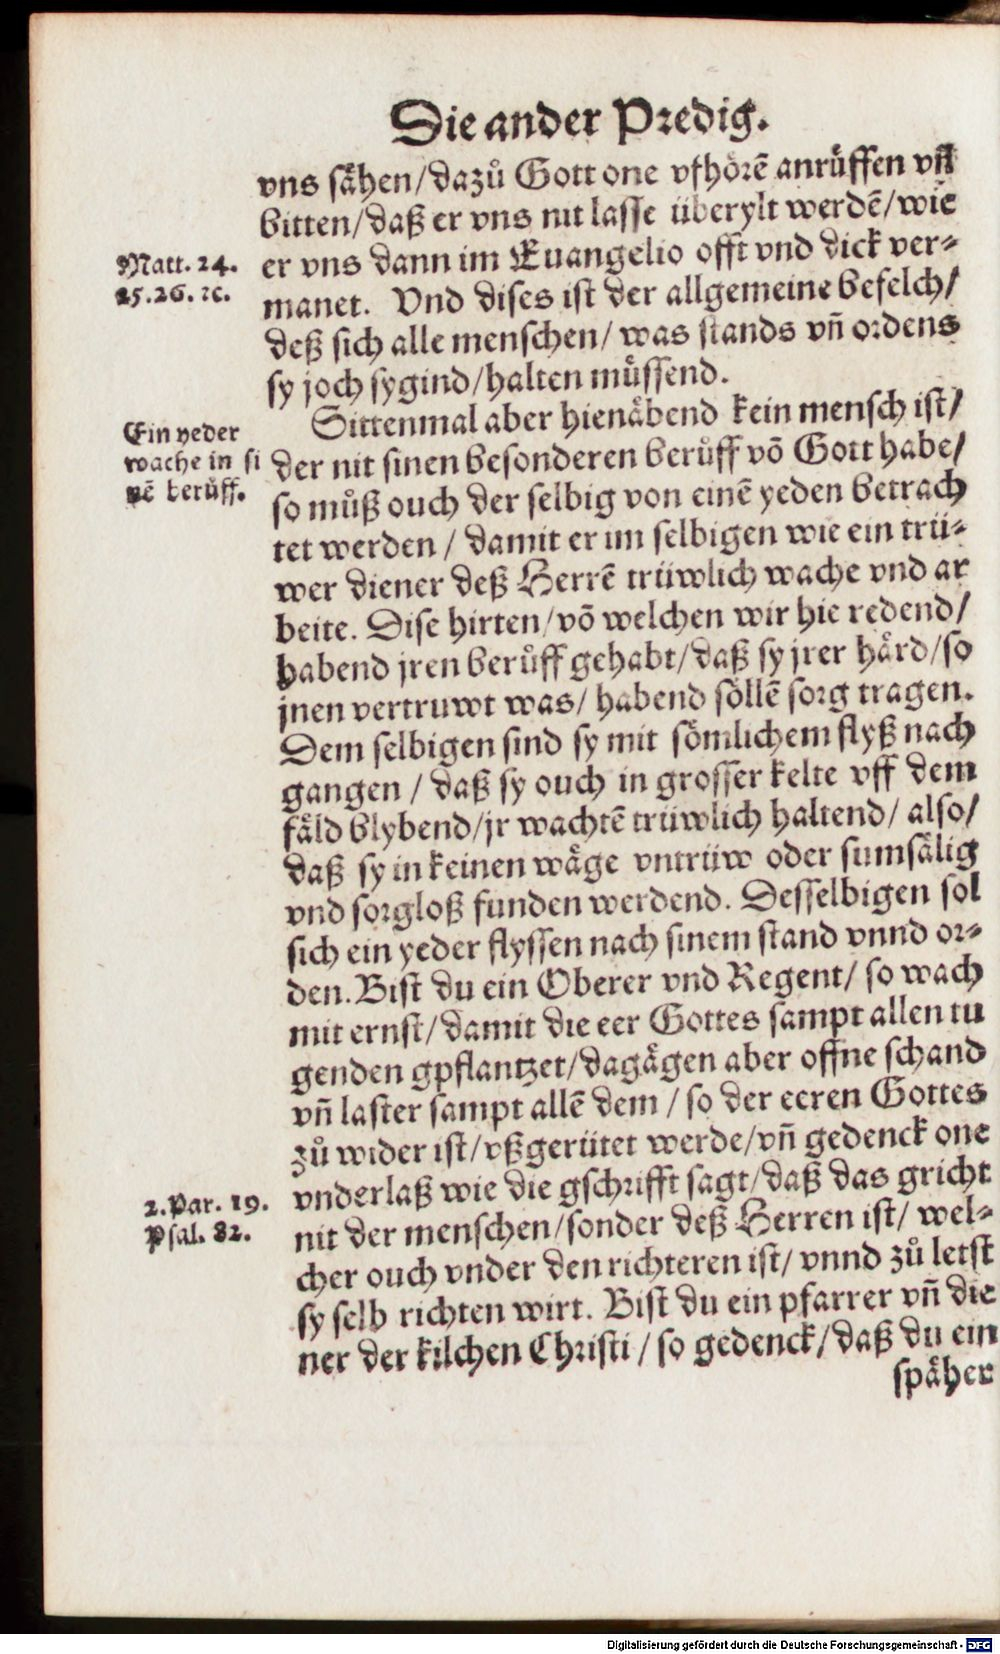 Die ander Predig.
vns sähen/dazů Gott one vfhörē anrüffen vñ
bitten/daß er vns nit lasse überylt werdē/wie
Matt. 24.
25.26.ꝛc.
er vns dann im Euangelio offt vnd dick ver-
manet. Vnd dises ist der allgemeine befelch/
deß sich alle menschen/ was stands vñ ordens
sy joch sygind/halten müssend.
Ein yeder
wache in si
nē berůff.
Sittenmal aber hienäbend kein mensch ist/
der nit sinen besonderen berůff vō Gott habe/
so můß ouch der selbig von einē yeden betrach
tet werden / damit er im selbigen wie ein trü-
wer diener deß Herrē trüwlich wache vnd ar
beite. Dise hirten/vō welchen wir hie redend/
habend jren berůff gehabt/daß sy jrer härd/so
jnen vertruwt was/ habend söllē sorg tragen.
Dem selbigen sind sy mit sömlichem flyß nach
gangen / daß sy ouch in grosser kelte vff dem
fäld blybend/jr wachtē trüwlich haltend/ also/
daß sy in keinen wäge vntrüw oder sumsälig
vnd sorgloß funden werdend. Desselbigen sol
sich ein yeder flyssen nach sinem stand vnnd or-
den. Bist du ein Oberer vnd Regent/ so wach
mit ernst/damit die eer Gottes sampt allen tu
genden gpflantzet/dagägen aber offne schand
vñ laster sampt allē dem / so der eeren Gottes
zů wider ist/vßgerütet werde/vñ gedenck one
vnderlaß wie die gschrifft sagt/daß das gricht
2. Par. 19.
Psal. 82.
nit der menschen/sonder deß Herren ist/ wel-
cher ouch vnder den richteren ist/ vnnd zů letst
sy selb richten wirt. Bist du ein pfarrer vñ die
ner der kilchen Christi / so gedenck/daß du ein
späher
Digitalisierung gefördert durch die Deutsche Forschungsgemeinschaft - DFG